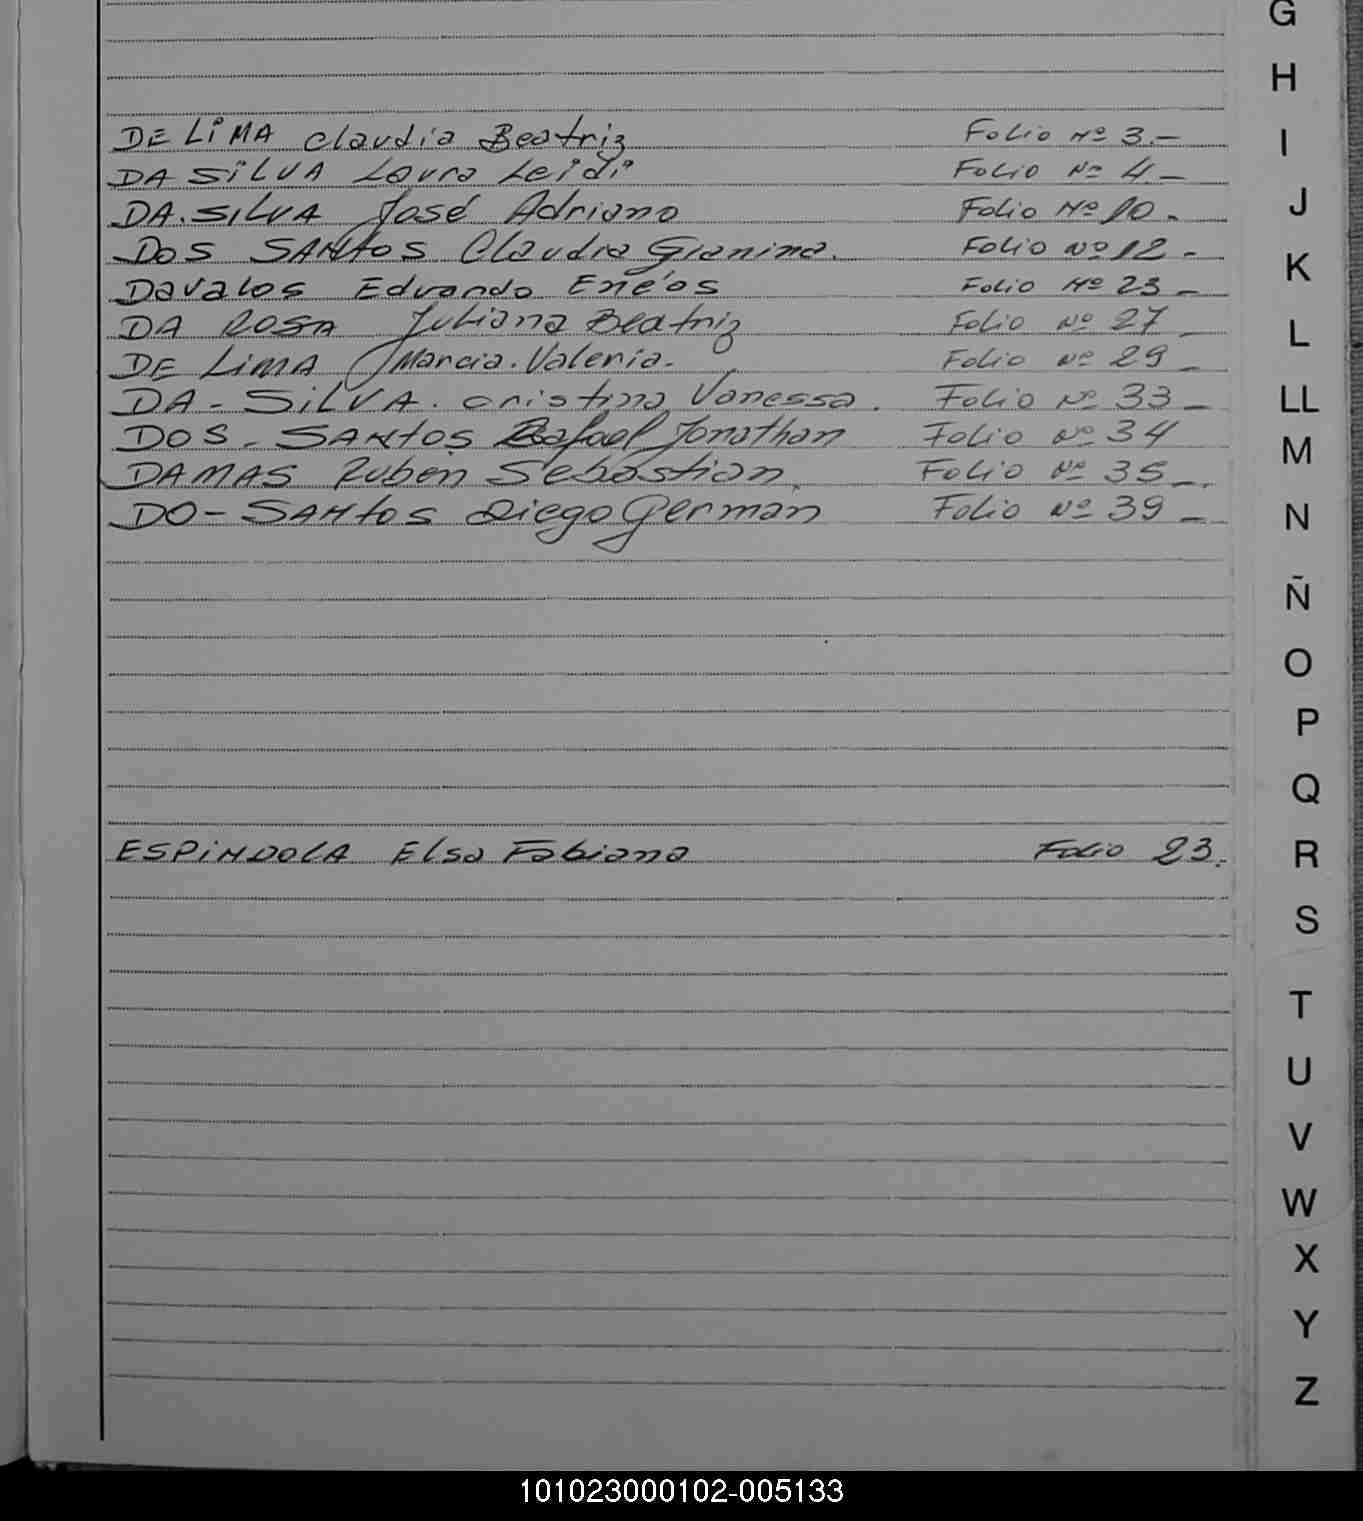 DE LiMA Claudia Beatriz Folio Nº 3.-
DA SiLVA Laura Leidi Folio Nº 4-
DA.SiLVA José Adriano Folio Nº 10.
DOS SANtOS Claudia Gianina. Folio Nº 12-
Davalos Eduardo Enéas Folio Nº 23-
DA ROSA Juliana Beatriz Folio Nº 27-
DE LiMA Marcia.Valeria. Folio Nº 29-
DA-SiLVA. Cristina Vanessa. Folio Nº 33-
DOS-SANtOS Rafael Jonathan Folio Nº 34
DAMAS Ruben Sebastian. Folio Nº 35-.
DO-SANtOS Diego German Folio Nº 39-
ESPiNDOLA Elsa Fabiana Folio 23.
G
H
I
J
K
L
LL
M
N
Ñ
O
P
Q
R
S
T
U
V
W
X
Y
Z
101023000102-005133